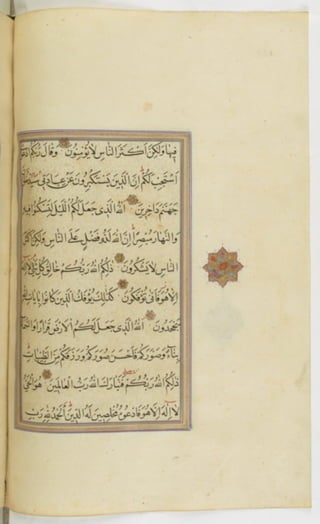 فيها ولكن اكثر الناس لا يؤمنون وقال ربكم
استجب لكم ان الذين يستكبرون عن عبادتي
جهنم داخرين الله الذي جعل لكم الليل لتسكنوا فيه
والنهار مبصرا ان الله لذو فضل على الناس ولكن اكثر
الناس لا يشكرون ذلكم الله ربكم خالق كل شيء لا اله
الا هو فانى تؤفكون كذلك يؤفك الذين كانوا بايات الله
يجحدون الله الذي جعل لكم الارض قرارا والسماء
بناء وصوركم فاحسن صوركم ورزقكم من الطيبات
ذلكم الله ربكم فتبارك الله رب العالمين هو الحي
لا اله الا هو فادعوه مخلصين له الدين الحمد لله رب